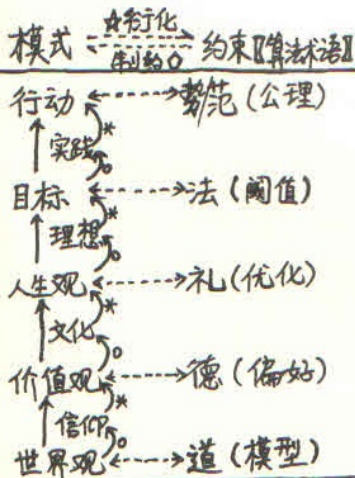 模式 ☆衍化 约束〖算法术语〗
制约○
行动 势范(公理)
实践 * ○
目标 法(阈值)
理想 * ○
人生观 礼(优化)
文化 * ○
价值观 德(偏好)
信仰 * ○
世界观 道(模型)